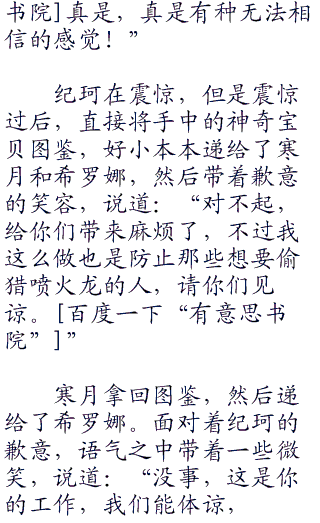 书院]真是，真是有种无法相
信的感觉！”
纪珂在震惊，但是震惊
过后，直接将手中的神奇宝
贝图鉴，好小本本递给了寒
月和希罗娜，然后带着歉意
的笑容，说道：“对不起，
给你们带来麻烦了，不过我
这么做也是防止那些想要偷
猎喷火龙的人，请你们见
谅。[百度一下“有意思书
院”]”
寒月拿回图鉴，然后递
给了希罗娜。面对着纪珂的
歉意，语气之中带着一些微
笑，说道：“没事，这是你
的工作，我们能体谅，